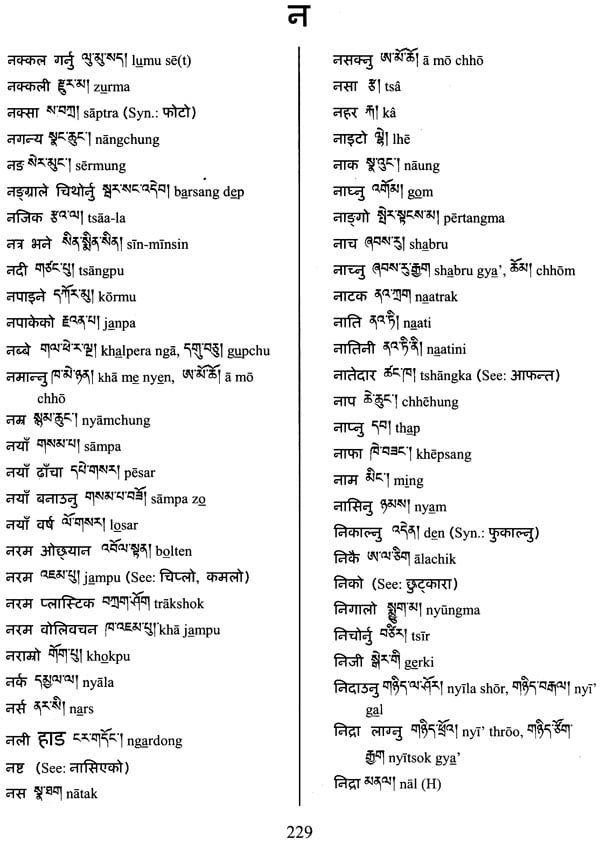 न
नक्कल गर्नु ལུ་མུ་སད། lumu sē(t)
नक्कली ཇུར་མ། zurma
नक्सा ས་བཀྲ། sāptra (Syn.: फोटो)
नगन्य སྣང་ཆུང་། nāngchung
नङ སེར་མུང་། sērmung
नङ्ग्राले चिथोर्नु སྦར་སང་འདེབ། barsang dep
नजिक རྩའ་ལ། tsāa-la
नत्र भने སིན་སྨིན་སིན། sīn-mīnsin
नदी གཙང་པུ། tsāngpu
नपाइने དཀོར་མུ། kōrmu
नपाकेको ཇའན་པ། janpa
नब्बे གལ་ཕེ་ར་ལྔ། khalpera ngā, དགུ་བཅུ། gupchu
नमान्नु ཁ་མེ་ཉན། khā me nyen, ཨ་མོ་ཆོ། ā mō
chhō
नम्र སྙམ་ཆུང་། nyāmchung
नयाँ གསམ་པ། sāmpa
नयाँ ढाँचा དཔེ་གསར། pēsar
नयाँ बनाउनु གསམ་པ་བཟོ། sāmpa zo
नयाँ वर्ष ལོ་གསར། losar
नरम ओछ्यान འབོལ་སྟན། bolten
नरम འཇམ་པུ། jampu (See: चिप्लो, कमलो)
नरम प्लास्टिक བཀྲག་ཤོག trākshok
नरम वोलिवचन ཁ་འཇམ་པུ། khā jampu
नराम्रो གོག་པུ། khokpu
नर्क དམྱལ་ལ། nyāla
नर्स ནར་སི། nars
नली हाड ངར་གདོང་། ngardong
नष्ट (See: नासिएको)
नस སྣ་ཐག nātak
नसक्नु ཨ་མོ་ཆོ། ā mō chhō
नसा རྩ། tsâ
नहर ཀ། kâ
नाइटो ལྟེ། lhē
नाक སྣ་འུང་། nāung
नाघ्नु འགོམ། gom
नाङ्गो སྤེར་སྟངས་མ། pērtangma
नाच ཞབས་རུ། shabru
नाच्नु ཞབས་རུ་རྒྱག shabru gya’, ཆོམ། chhōm
नाटक ནའ་ཀྲག naatrak
नाति ནའ་ཏི། naati
नातिनी ནའ་ཏི་ནི། naatini
नातेदार ཚང་ཁ། tshāngka (See: आफन्त)
नाप ཆེ་ཆུང་། chhēhung
नाप्नु དབ། thap
नाफा ཁེ་བཟང་། khēpsang
नाम མིང་། ming
नासिनु ཉམས། nyam
निकाल्नु འདེན། den (Syn.: फुकाल्नु)
निकै ཨ་ལ་ཅིག ālachik
निको (See: छुट्कारा)
निगालो སྨྱུག་མ། nyūngma
निचोर्नु བཙིར། tsīr
निजी སྒེར་གི gerki
निदाउनु གཉིད་ལ་ཤོར། nyīla shōr, གཉིད་བརྒལ། nyī’
gal
निद्रा लाग्नु གཉིད་ཕྲོའ། nyī’ thrōo, གཉིད་ཙོག་
རྒྱག nyītsok gya’
निद्रा མནལ། nāl (H)
229